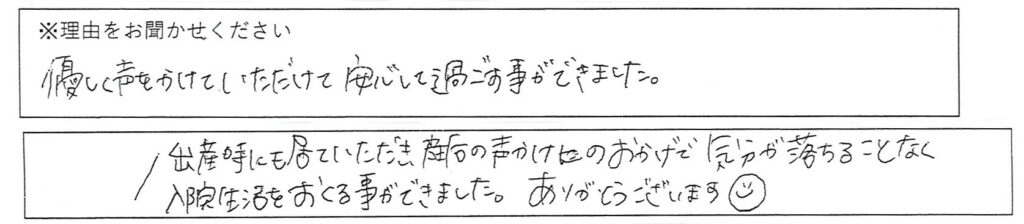 ※理由をお聞かせください
優しく声をかけていただけて安心して過ごす事ができました。
出産時にも居ていただき産后の声かけのおかげで気分が落ちることなく
入院生活をおくる事ができました。ありがとうございます